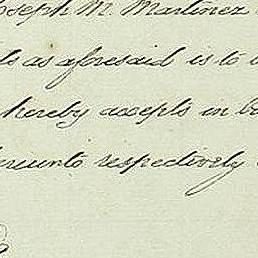 Joseph M. Martinez
as aforesaid is to
hereby accepts in
respectively